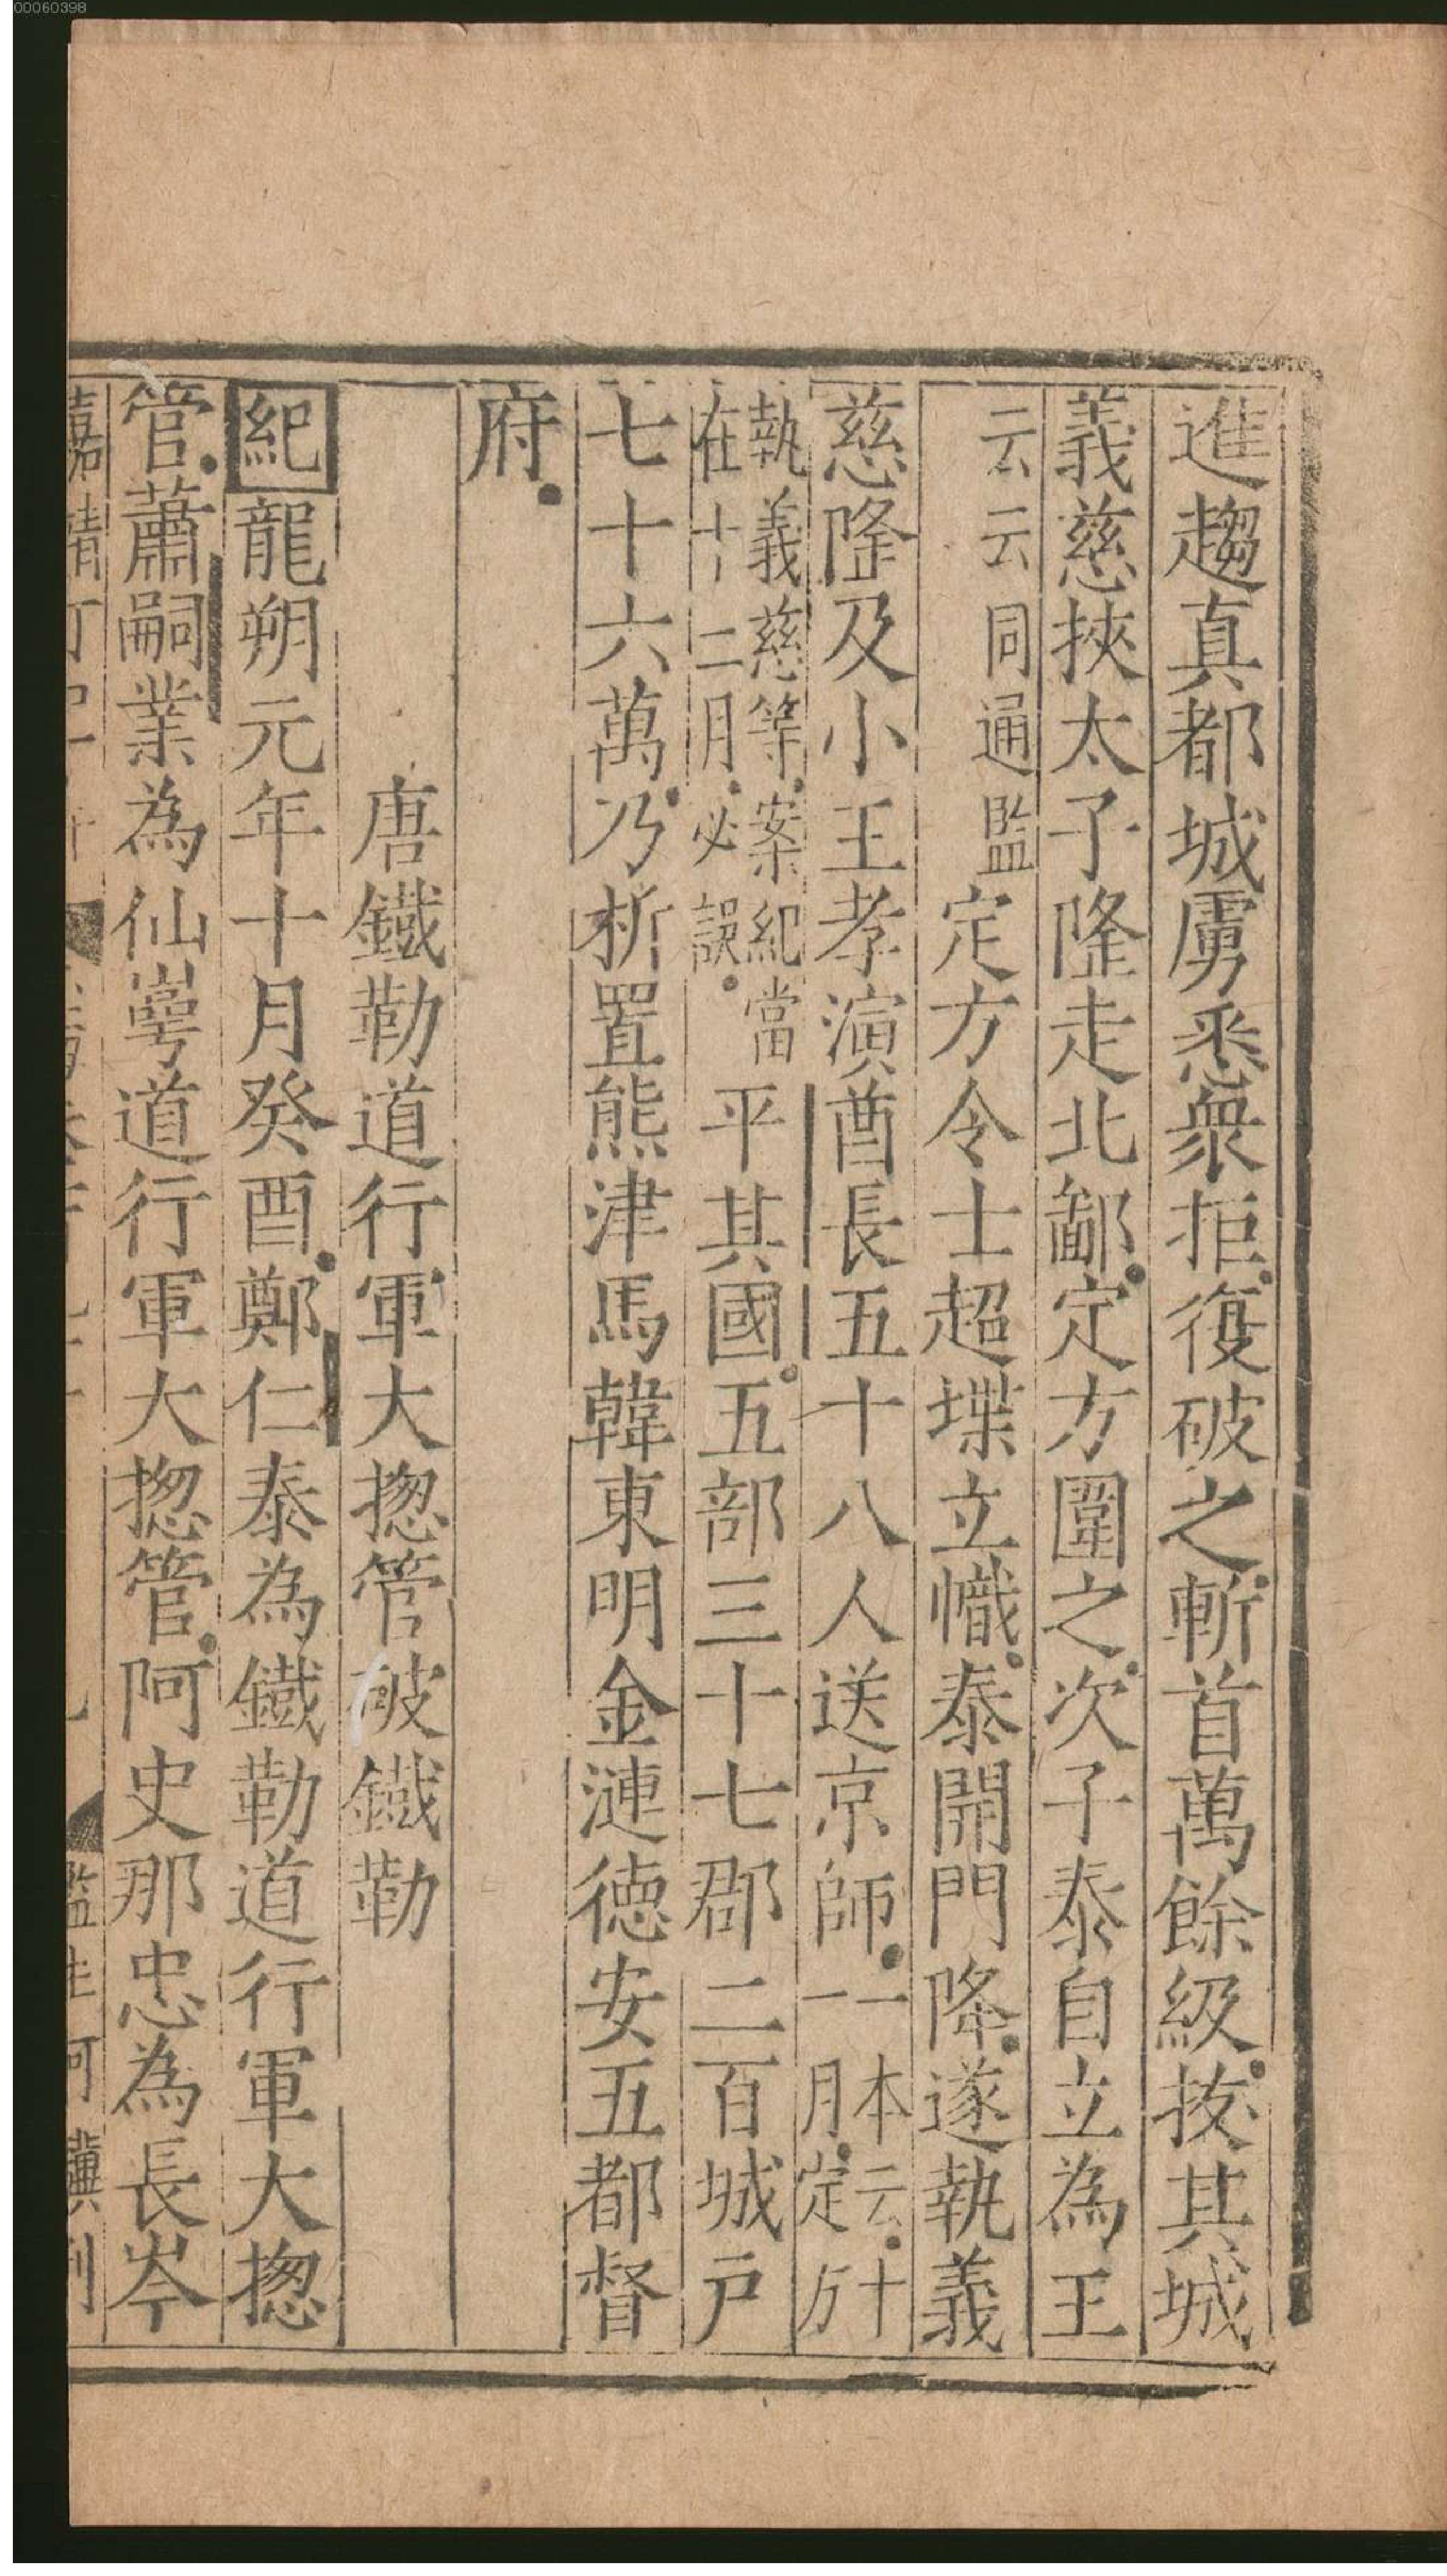 00060398
進趨真都城虜悉衆拒復破之斬首萬餘級拔其城
義慈挾太子隆走北鄙定方圍之次子泰自立為王
云云同通監定方令士超堞立幟泰開門降遂執義
慈隆及小王孝演酋長五十八人送京師一本云十一月定方
執義慈等案紀當在十二月必誤平其國五部三十七郡二百城戶
七十六萬乃析置熊津馬韓東明金漣德安五都督
府
唐鐵勒道行軍大揔管破鐵勒
紀龍朔元年十月癸酉鄭仁泰為鐵勒道行軍大揔
管蕭嗣業為仙萼道行軍大揔管阿史那忠為長岑